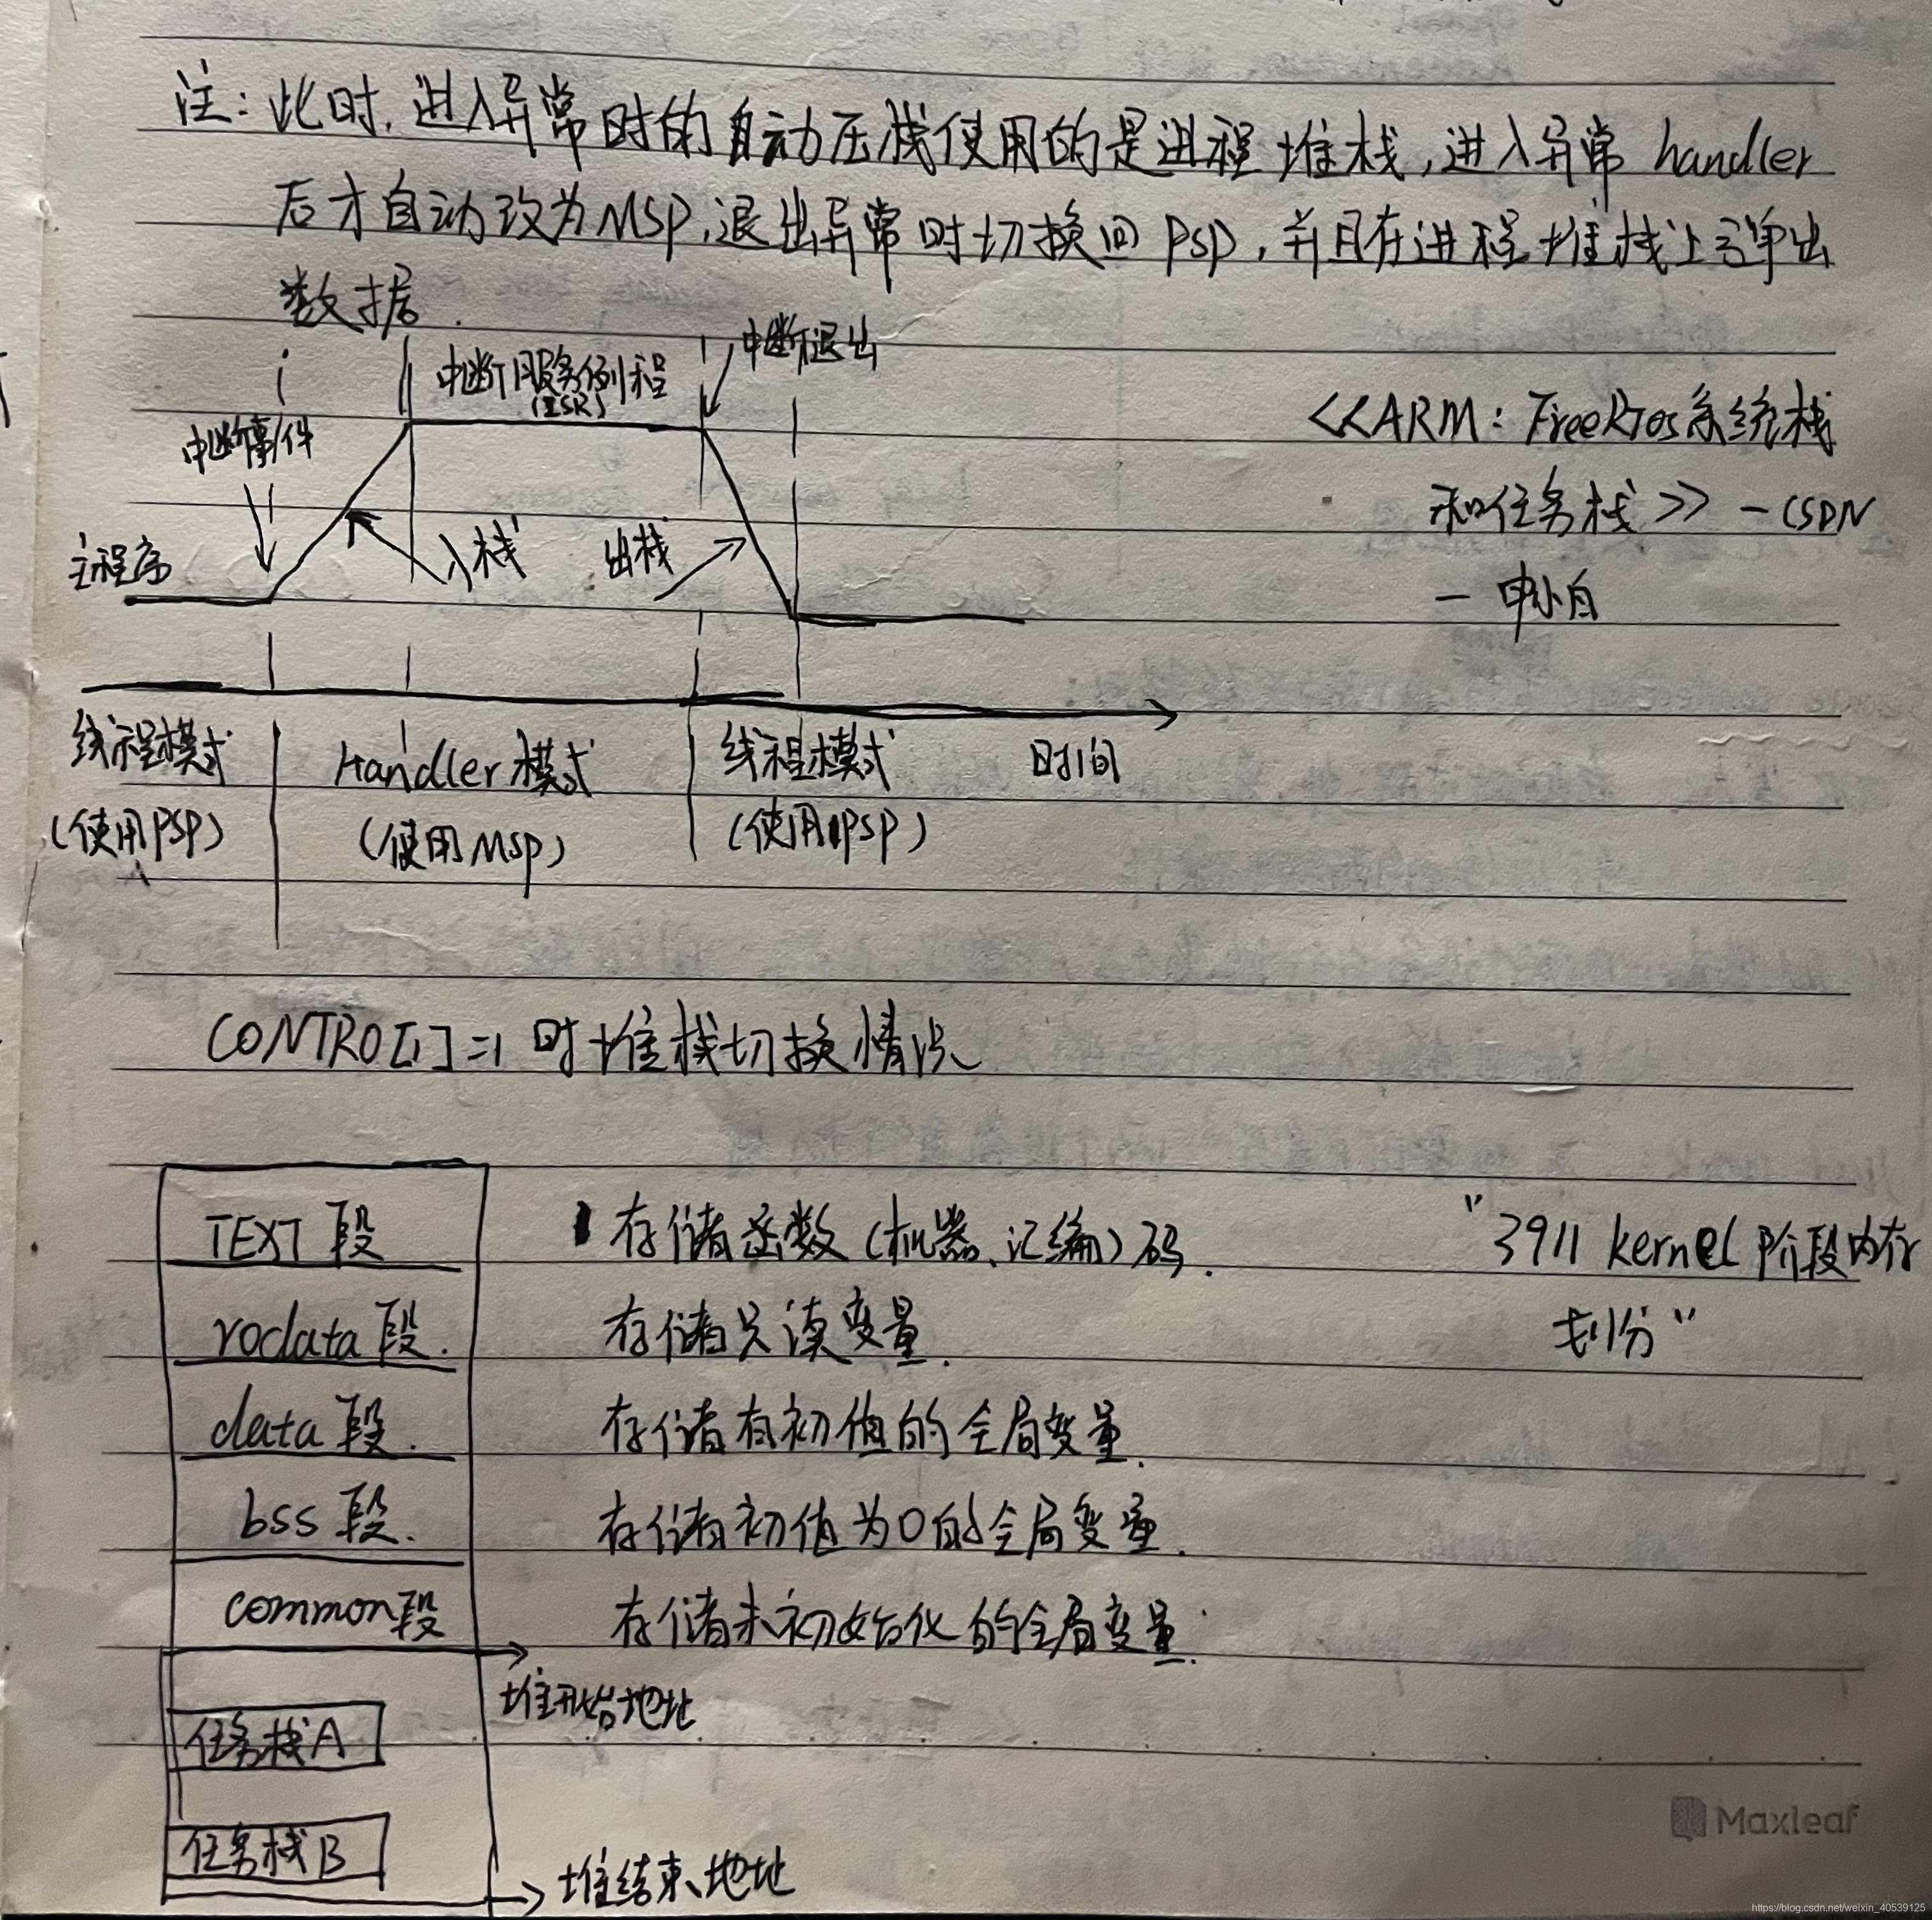 注：此时，进入异常时的自动压栈使用的是进程堆栈，进入异常 handler
后才自动改为MSP，退出异常时切换回PSP，并且在进程堆栈上弹出
数据.
中断退出
中断服务例程
(ISR)
中断事件
<<ARM：FreeRTos系统栈
和任务栈>> —CSDN
入栈
出栈
主程序
线程模式
Handler模式
线程模式
时间
(使用PSP)
(使用MSP)
(使用PSP)
CONTRO[1]=1 时堆栈切换情况
TEXT 段
存储函数 (机器、汇编) 码.
"3911 kernel 阶段内存
划分"
rodata 段.
存储只读变量.
data 段.
存储有初值的全局变量.
bss 段.
存储初值为0的全局变量.
common段
存储未初始化的全局变量.
堆开始地址
任务栈A
任务栈B
堆结束地址
Maxleaf
https://blog.csdn.net/weixin_40539125